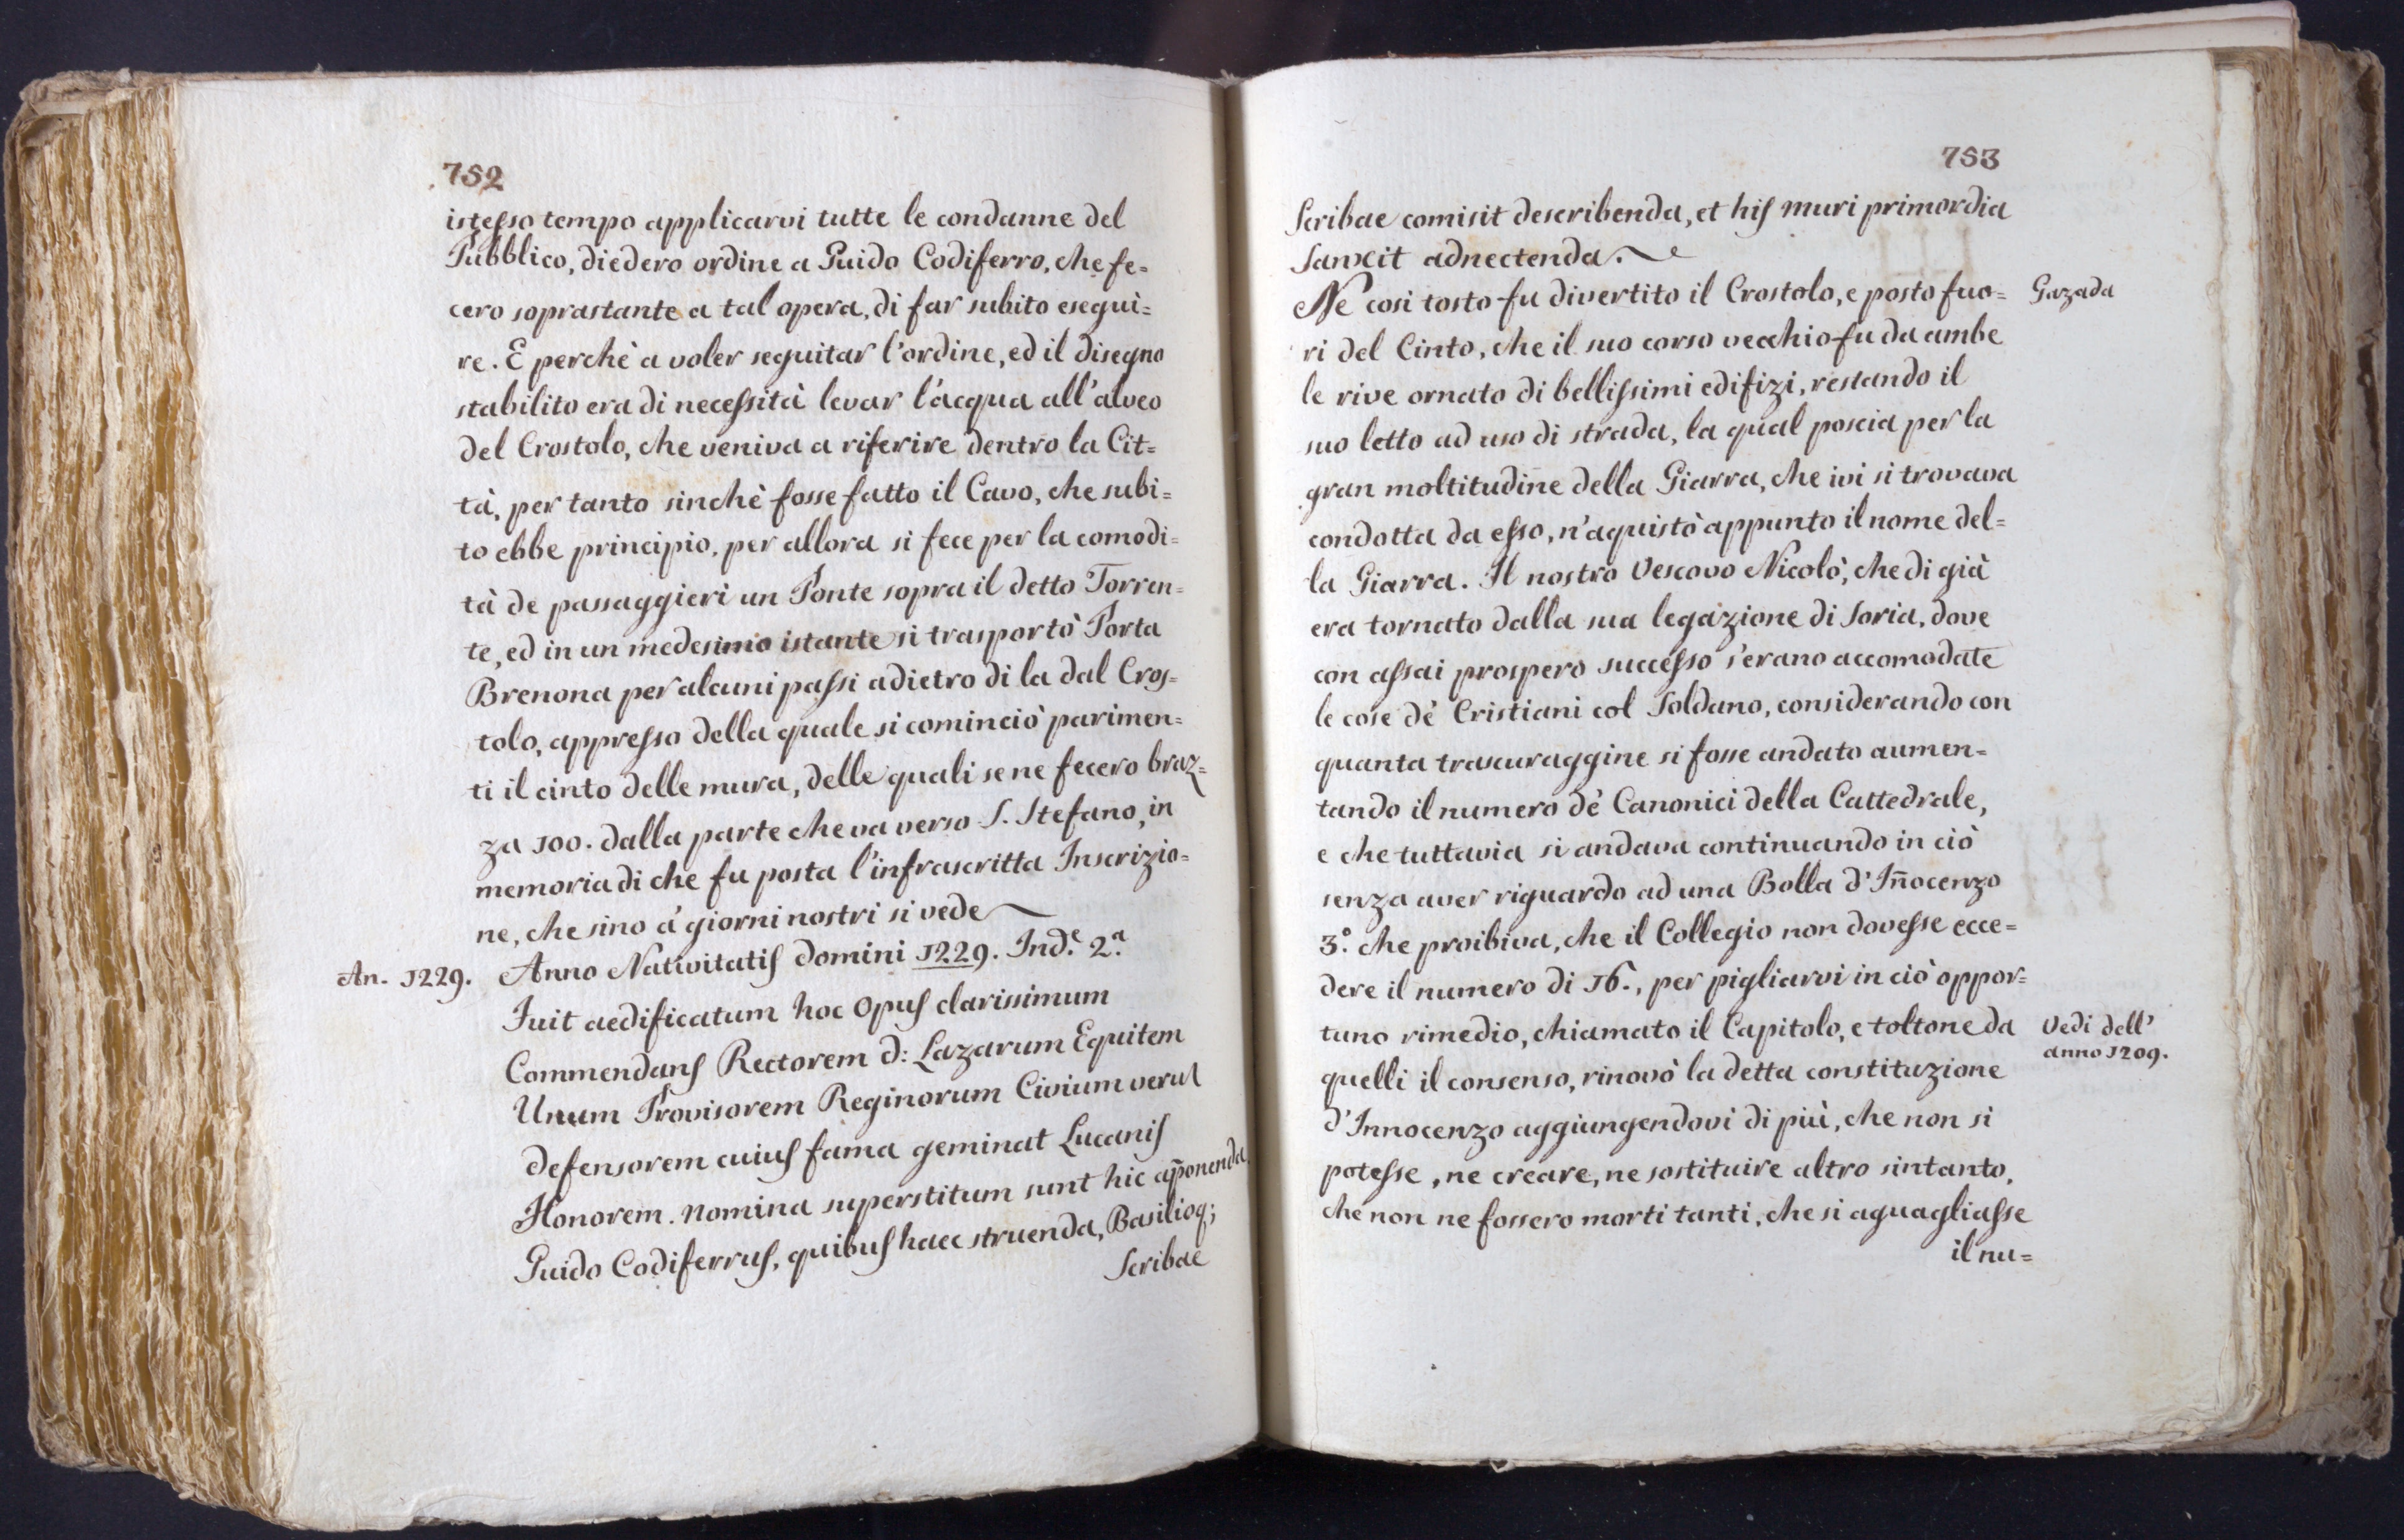 752
istesso tempo applicarvi tutte le condanne del
Pubblico, diedero ordine a Guido Codiferro, che fe=
cero soprastante a tal opera, di far subito esegui=
re. E perchè a voler seguitar l'ordine, ed il disegno
stabilito era di necessità levar l'acqua all'alveo
del Crostolo, che veniva a riferire dentro la Cit=
tà, per tanto sinchè fosse fatto il Cavo, che subi=
to ebbe principio, per allora si fece per la comodi=
tà de passaggieri un Ponte sopra il detto Torren=
te, ed in un medesimo istante si trasportò Porta
Brenona per alcuni passi adietro di la dal Cros=
tolo, appresso della quale si cominciò parimen=
ti il cinto delle mura, delle quali se ne fecero braz=
za 100. dalla parte che va verso S. Stefano, in
memoria di che fu posta l'infrascritta Inscrizio=
ne, che sino a' giorni nostri si vede
An. 1229. Anno Nativitatis Domini 1229. Ind.e 2.a
Fuit aedificatum hoc opus clarissimum
Commendans Rectorem d: Lazarum Equitem
Unum Provisorem Reginorum Civium verul
defensorem cuius fama geminat Lucanis
Honorem. nomina superstitum sunt hic apponenda,
Guido Codiferrus, quibus haec struenda, Basilioq;
Scribae
753
Scribae comisit describenda, et his muri primordia
Sanxit adnectenda.
Ne cosi tosto fu divertito il Crostolo, e posto fuo= Gazada
ri del Cinto, che il suo corso vecchio fu da ambe
le rive ornato di bellissimi edifizi, restando il
suo letto ad uso di strada, la qual poscia per la
gran moltitudine della Giarra, che ivi si trovava
condotta da esso, n'aquistò appunto il nome del=
la Giarra. Il nostro Vescovo Nicolò, che di già
era tornato dalla sua legazione di Soria, dove
con assai prospero successo s'erano accomodate
le cose dè Cristiani col Soldano, considerando con
quanta trascuraggine si fosse andato aumen=
tando il numero dè Canonici della Cattedrale,
e che tuttavia si andava continuando in ciò
senza aver riguardo ad una Bolla d'Iñocenzo
3.o che proibiva, che il Collegio non dovesse ecce=
dere il numero di 16., per pigliarvi in ciò oppor=
tuno rimedio, chiamato il Capitolo, e toltone da Vedi dell'
anno 1209.
quelli il consenso, rinovò la detta constituzione
d'Innocenzo aggiungendovi di più, che non si
potesse, ne creare, ne sostituire altro sintanto,
che non ne fossero morti tanti, che si aguagliasse
il nu=